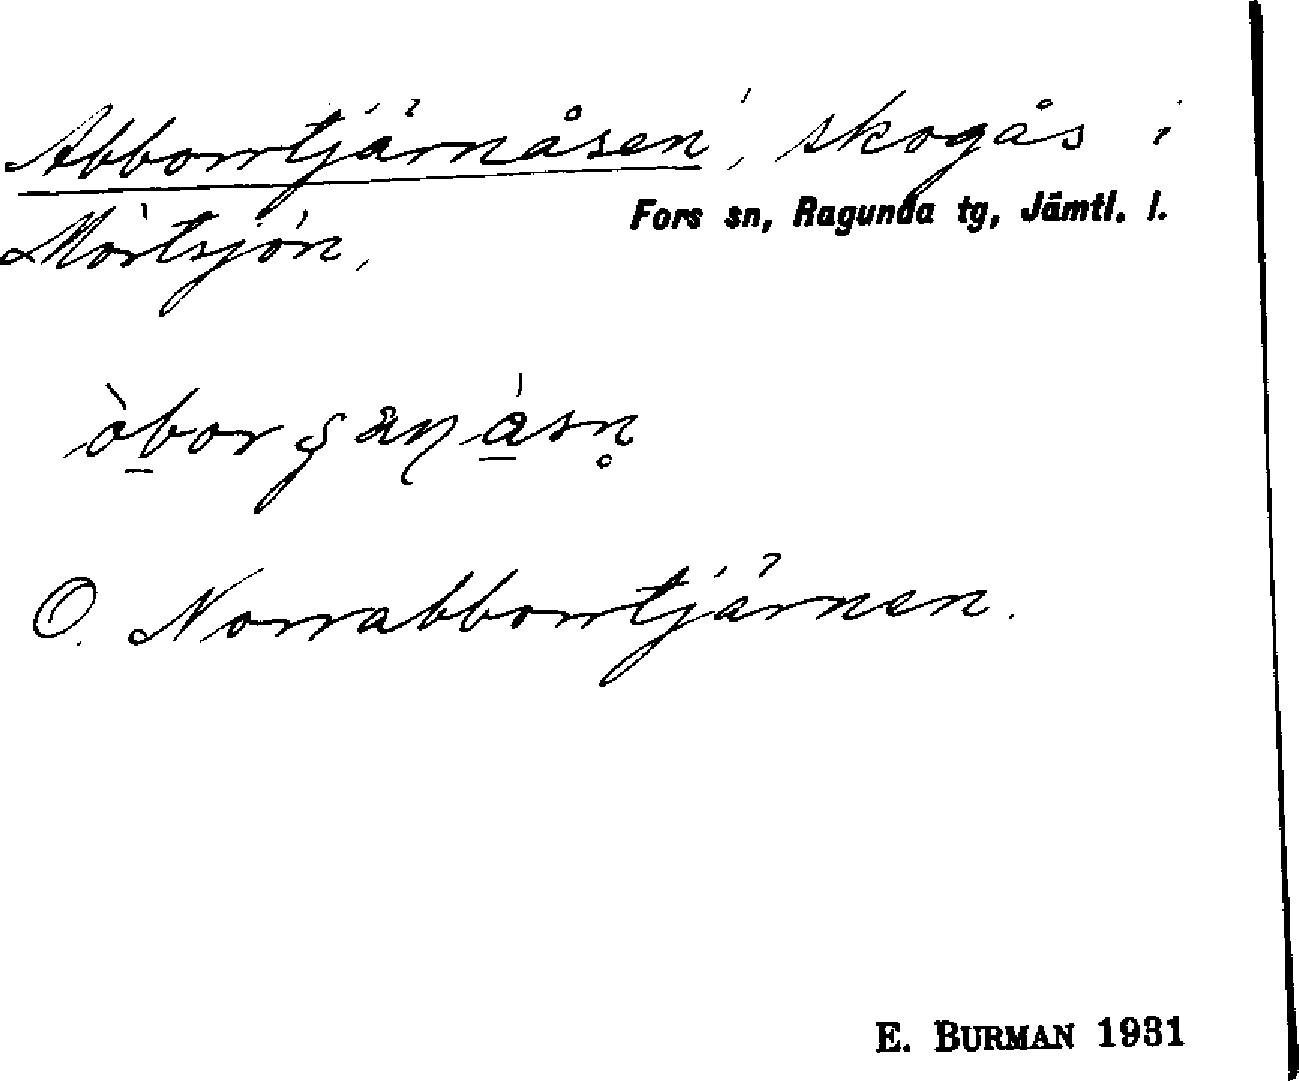 Abborrtjärnåsen, skogås i
Fors sn, Ragunda tg, Jämtl. l.
Mörtsjön.
O. Norrabborrtjärnen.
E. BURMAN 1931